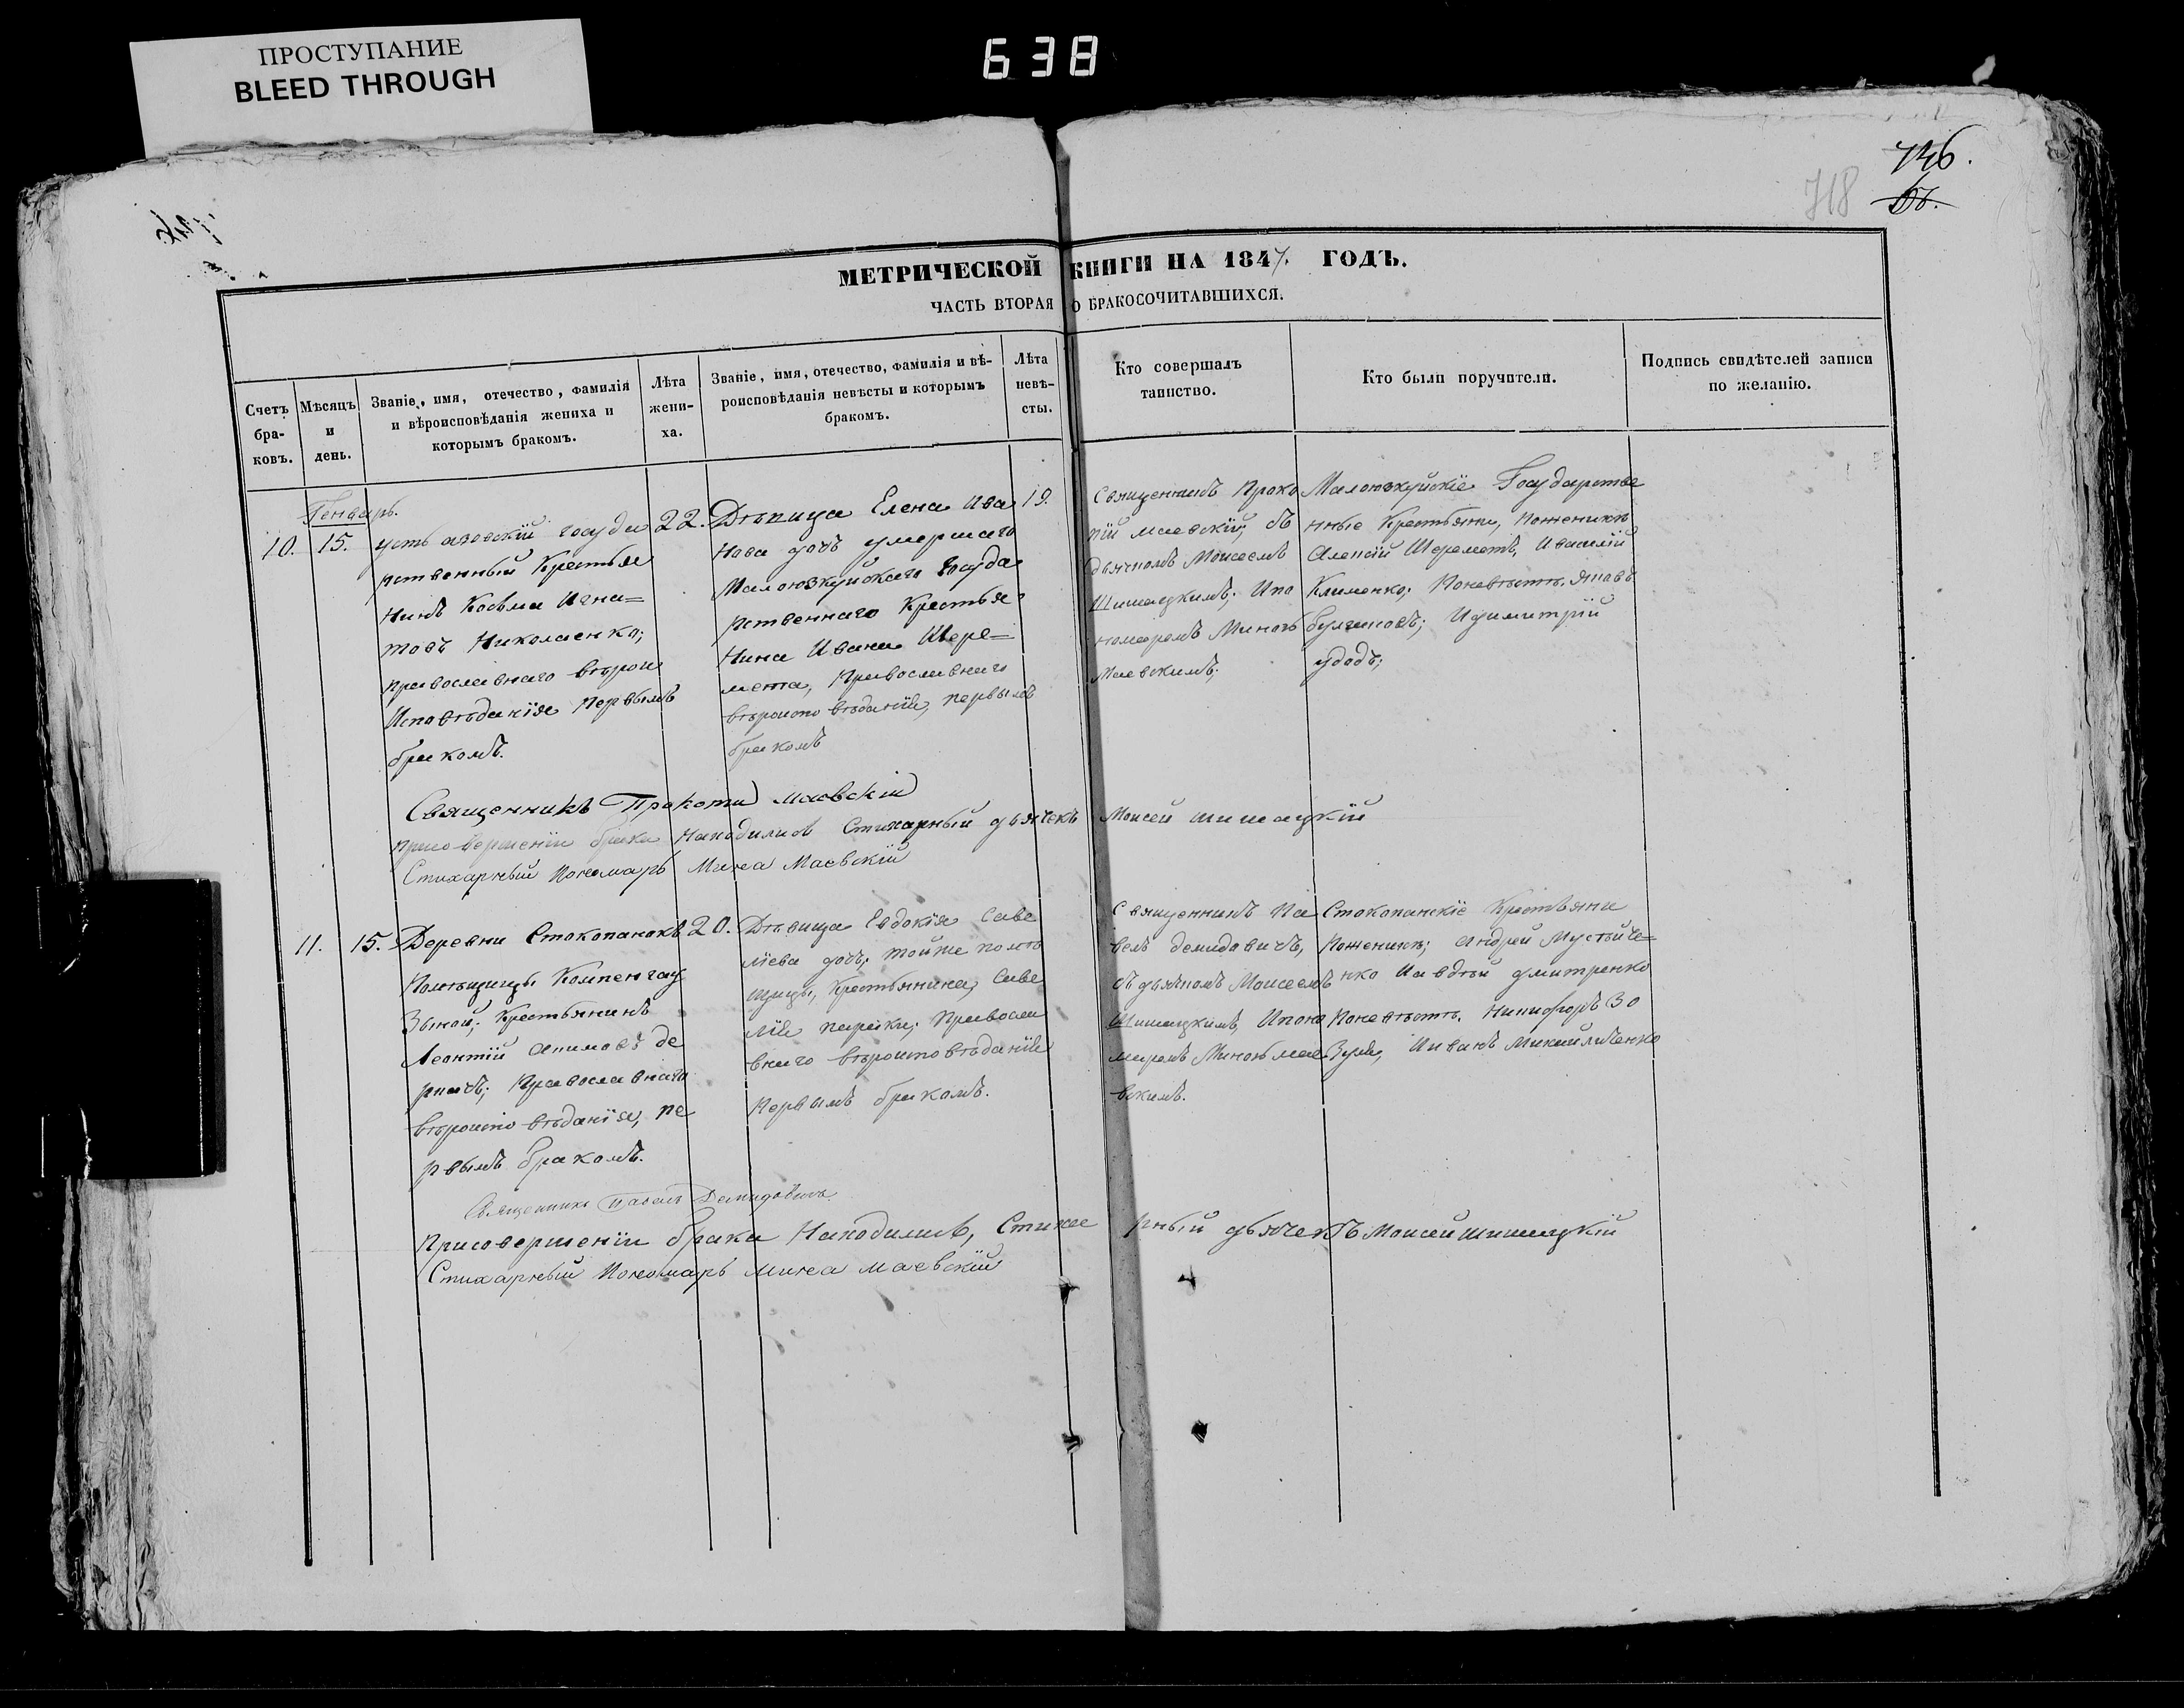 ПРОСТУПАНИЕ
BLEED THROUGH
638
746.
718
МЕТРИЧЕСКОЙ КНИГИ НА 1847. ГОДЪ.
ЧАСТЬ ВТОРАЯ О БРАКОСОЧИТАВШИХСЯ.
Счетъ
бра-
ковъ.
Мѣсяцъ
и
день.
Званіе, имя, отечество, фамилія
и вѣроисповѣданія жениха и
которымъ бракомъ.
Лѣта
жени-
ха.
Званіе, имя, отечество, фамилія и вѣ-
роисповѣданія невѣсты и которымъ
бракомъ.
Лѣта
невѣ-
сты.
Кто совершалъ
таинство.
Кто были поручители.
Подпись свидѣтелей записи
по желанію.
Генварь.
10.
15.
усть азовскій госуда
рственный Крестья
нинъ Косьма Игна=
товъ Николаенко;
православнаго вѣрои
исповѣданія первымъ
бракомъ.
22.
Дѣвица Елена Ива
нова дочь умершаго
Госуда
рственнаго Крестья
нина Ивана Шере=
мета, Православнаго
вѣроиспо вѣданія, первымъ
бракомъ
19.
Священникъ Проко
пій маевскій, съ
дьячкомъ Моисеемъ
Шишацкимъ; Ипо
номаремъ Миною
Маевскимъ;
Государстве
нные Крестьяне, Поженихѣ
Алексій Шереметъ, Ивасилій
Клименко; Поневѣстѣ. Яковъ
Идимитрій
удодъ;
Священникъ Прокопій Маевскій
Присовершеніи брака Находились Стихарный дьячекъ Моисей Шишацкій
Стихарный Пономарь Мина Маевскій
11.
15.
Деревни Стокопанокъ
Помѣщицы
Крестьянинъ
Леонтій Акимовъ де
ркачъ; Православнаго
вѣроиспо вѣданія, пе
рвымъ бракомъ.
20.
Дѣвица Евдокія Саве
ліева дочь; тойже помѣ
щицы, Крестьянина, Саве
лія Православ
внаго вѣроиспо вѣданія
Первымъ бракомъ.
Священникъ Па
велъ демидовичъ,
съ дьячкомъ Моисеемъ
Шишацкимъ, Ипоно
маремъ Миною мае
вскимъ.
Стокопанскіе Крестьяне
Поженихѣ; Андрей
нко Иавдѣй дмитренко
Поневѣстѣ. Никифоръ Зо
зуля, Ииванъ Михайличенко
Священникъ Павелъ Демидовичъ
Присовершеніи брака Находились, Стиха рный дьячекъ Моисей Шишацкій
Стихарный Пономарь Мина Маевскій